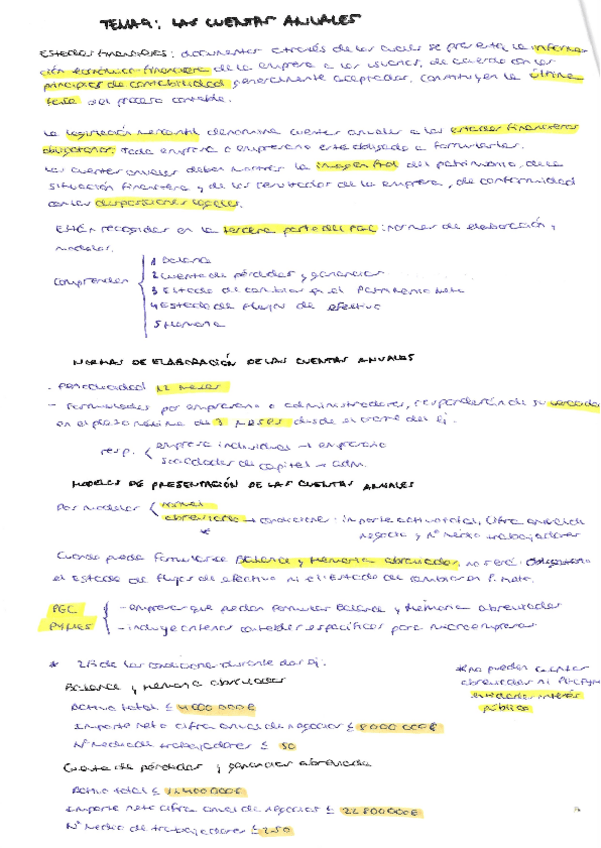 TEMA 9: LAS CUENTAS ANUALES
Estados financieros: documentos a través de los cuales se presenta la informa-
ción económico-financiera de la empresa a los usuarios, de acuerdo con los
principios de contabilidad generalmente aceptados. Constituyen la última
fase del proceso contable.
La legislación mercantil denomina cuentas anuales a los estados financieros
obligatorios. Toda empresa o empresario está obligado a formularlas.
Las cuentas anuales deben mostrar la imagen fiel del patrimonio, de la
situación financiera y de los resultados de la empresa, de conformidad
con las disposiciones legales.
Están recogidas en la tercera parte del PGC: normas de elaboración y
modelos.
comprenden
1 Balance
2 Cuenta de pérdidas y ganancias
3 Estado de cambios en el Patrimonio Neto
4 Estado de flujos de efectivo
5 Memoria
NORMAS DE ELABORACIÓN DE LAS CUENTAS ANUALES
- Periodicidad 12 meses
- Formuladas por empresario o administradores, responderán de su veracidad
en el plazo máximo de 3 meses desde el cierre del ej.
resp. empresa individual → empresario
sociedades de capital → adm.
MODELOS DE PRESENTACIÓN DE LAS CUENTAS ANUALES
Dos modelos normal
abreviado → condiciones: importe activo total, cifra anual de
* negocio y nº medio trabajadores
Cuando pueda formularse Balance y Memoria abreviados, no será obligatorio
el estado de flujos de efectivo ni el estado de cambios en P. Neto.
PGC PYMES
- empresas que puedan formular Balance y Memoria abreviados
- incluye criterios contables específicos para microempresas
* 2/3 de las condiciones durante dos ej.
Balance y Memoria abreviados
Activo total ≤ 4000000€
Importe neto cifra anual de negocios ≤ 8000000€
Nº Medio de trabajadores ≤ 50
Cuenta de pérdidas y ganancias abreviada
Activo total ≤ 11400000€
Importe neto cifra anual de negocios ≤ 22800000€
Nº Medio de trabajadores ≤ 250
* no pueden
abreviadas ni PGC Pymes
entidades interés
público